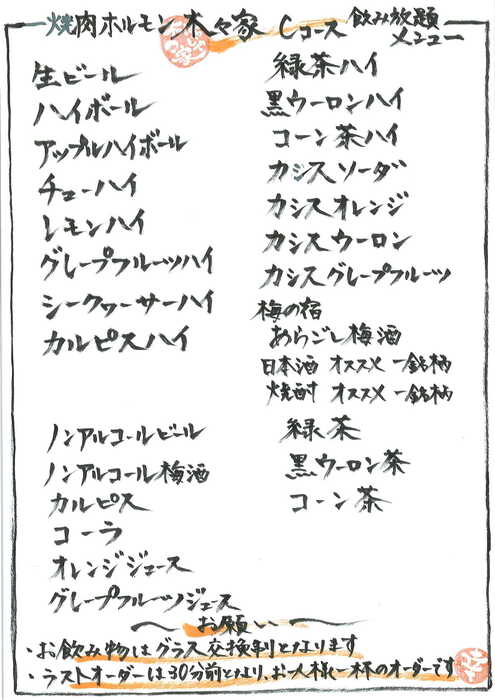 焼肉ホルモン 木々家 Cコース 飲み放題
メニュー
生ビール
ハイボール
アップルハイボール
チューハイ
レモンハイ
グレープフルーツハイ
シークヮーサーハイ
カルピスハイ
緑茶ハイ
黒ウーロンハイ
コーン茶ハイ
カシスソーダ
カシスオレンジ
カシスウーロン
カシスグレープフルーツ
梅の宿
あらごし梅酒
日本酒 オススメ 一銘柄
焼酎 オススメ 一銘柄
ノンアルコールビール
ノンアルコール梅酒
カルピス
コーラ
オレンジジュース
グレープフルーツジュース
緑茶
黒ウーロン茶
コーン茶
〜お願い〜
・お飲み物はグラス交換制となります
・ラストオーダーは30分前となり、お一人様一杯のオーダーです